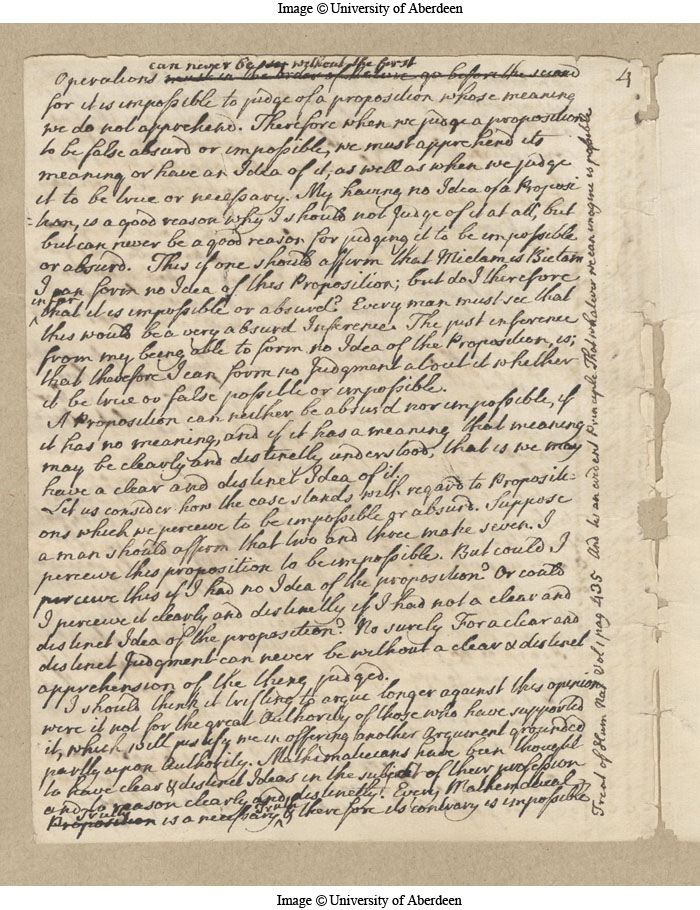 Image © University of Aberdeen
4
can never be without the first
Operations must in the order of Nature go before the second
for it is impossible to judge of a proposition whose meaning
we do not apprehend. Therefore when we judge a proposition
to be false absurd or impossible, we must apprehend its
meaning or have an Idea of it, as well as when we judge
it to be true or necessary. My having no Idea of a Proposi
=tion, is a good reason why I should not Judge of it at all, but
but can never be a good reason for judging it to be impossible
or absurd. This if one should affirm that Miclam is Biclam
I can form no Idea of this Proposition; but do I therefore
infer
that it is impossible or absurd? Every man must see that
this would be a very absurd Inference. The just inference
from my being able to form no Idea of the Proposition, is;
that therefore I can form no Judgment about it whether
it be true or false possible or impossible.
A Proposition can neither be absurd nor impossible, if
it has no meaning, and if it has a meaning that meaning
may be clearly and distinctly understood, that is we may
have a clear and distinct Idea of it
Let us consider how the case stands with regard to Propositi=
ons which we perceive to be impossible or absurd. Suppose
a man should affirm that two and three make seven. I
perceive this proposition to be impossible. But could I
perceive this if I had no Idea of the proposition? Or could
I perceive it clearly and distinctly if I had not a clear and
distinct Idea of the proposition? No surely For a clear and
distinct Judgment can never be without a clear & distinct
apprehension of the thing judged.
I should think it trifling to argue longer against this opinion
were it not for the great Authority of those who have supported
it, which will justify me in offering another argument grounded
partly upon Authority. Mathematicians have been thought
to have clear & distinct Ideas in the subject of their profession
and to reason clearly and distinctly. Every Mathematical
Truth Truth
Proposition is a necessary & therefore its contrary is impossible
Treat of Hum Nat Vol 1 pag 435 And tis an evident Principle That whatever we can imagine is possible
Image © University of Aberdeen